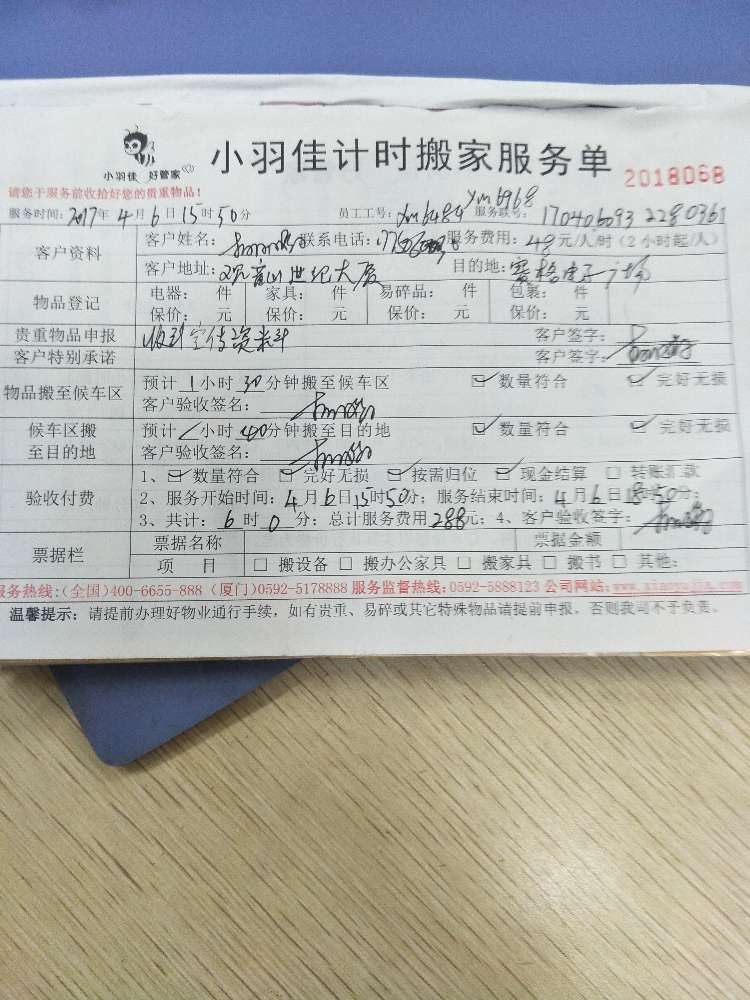 小羽佳 好管家
小羽佳计时搬家服务单
2018068
请您于服务前收拾好您的贵重物品!
ym6968
服务时间:2017年4月6日15时50分 员工工号: 服务联号: 170406093 2280361
客户资料
客户姓名: 联系电话: 服务费用:48元/人/时(2小时起/人)
客户地址:观音山世纪大厦 目的地:赛格电子广场
物品登记
电器: 件 家具: 件 易碎品: 件 包裹: 件
保价: 元 保价: 元 保价: 元 保价: 元
贵重物品申报 收到宣传资料 客户签字:
客户特别承诺 客户签字:
物品搬至候车区
预计1小时30分钟搬至候车区 ☑数量符合 ☑完好无损
客户验收签名:
候车区搬至目的地
预计 小时40分钟搬至目的地 ☑数量符合 ☑完好无损
客户验收签名:
验收付费
1、☑数量符合 ☑完好无损 ☑按需归位 ☑现金结算 □转账汇款
2、服务开始时间:4月6日15时50分;服务结束时间:4月6日18时50分;
3、共计:6时0分;总计服务费用288元;4、客户验收签字:
票据栏
票据名称 票据金额
项 目 □搬设备 □搬办公家具 □搬家具 □搬书 □其他:
服务热线:(全国)400-6655-888 (厦门)0592-5178888 服务监督热线:0592-5888123 公司网站:www.xiaoyujia.com
温馨提示:请提前办理好物业通行手续,如有贵重、易碎或其它特殊物品请提前申报,否则我司不予负责。